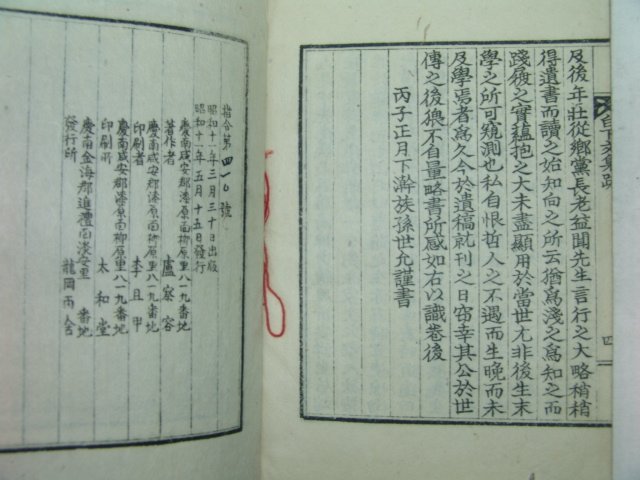 及後年壯從鄉黨長老益聞先生言行之大略稍稍
得遺書而讀之始知向之所云猶爲淺之爲知之而
踐履之實蘊抱之大未盡顯用於當世尤非後生末
學之所可窺測也私自恨哲人之不遇而生晩而未
及學焉者爲久今於遺稿就刊之日窃幸其公於世
傳之後猥不自量略書所感如右以識卷後
丙子正月下澣族孫世允謹書
四
指令第四一〇號
昭和十一年三月三十日出版
昭和十一年五月十五日發行
慶南咸安郡漆原面柳原里八一九番地
著作者 盧容
慶南咸安郡漆原面柳原里八一九番地
印刷者 李且甲
慶南咸安郡漆原面柳原里八一九番地
印刷所 太和堂
慶南金海郡進禮面淡安里 番地
發行所 龍岡舍